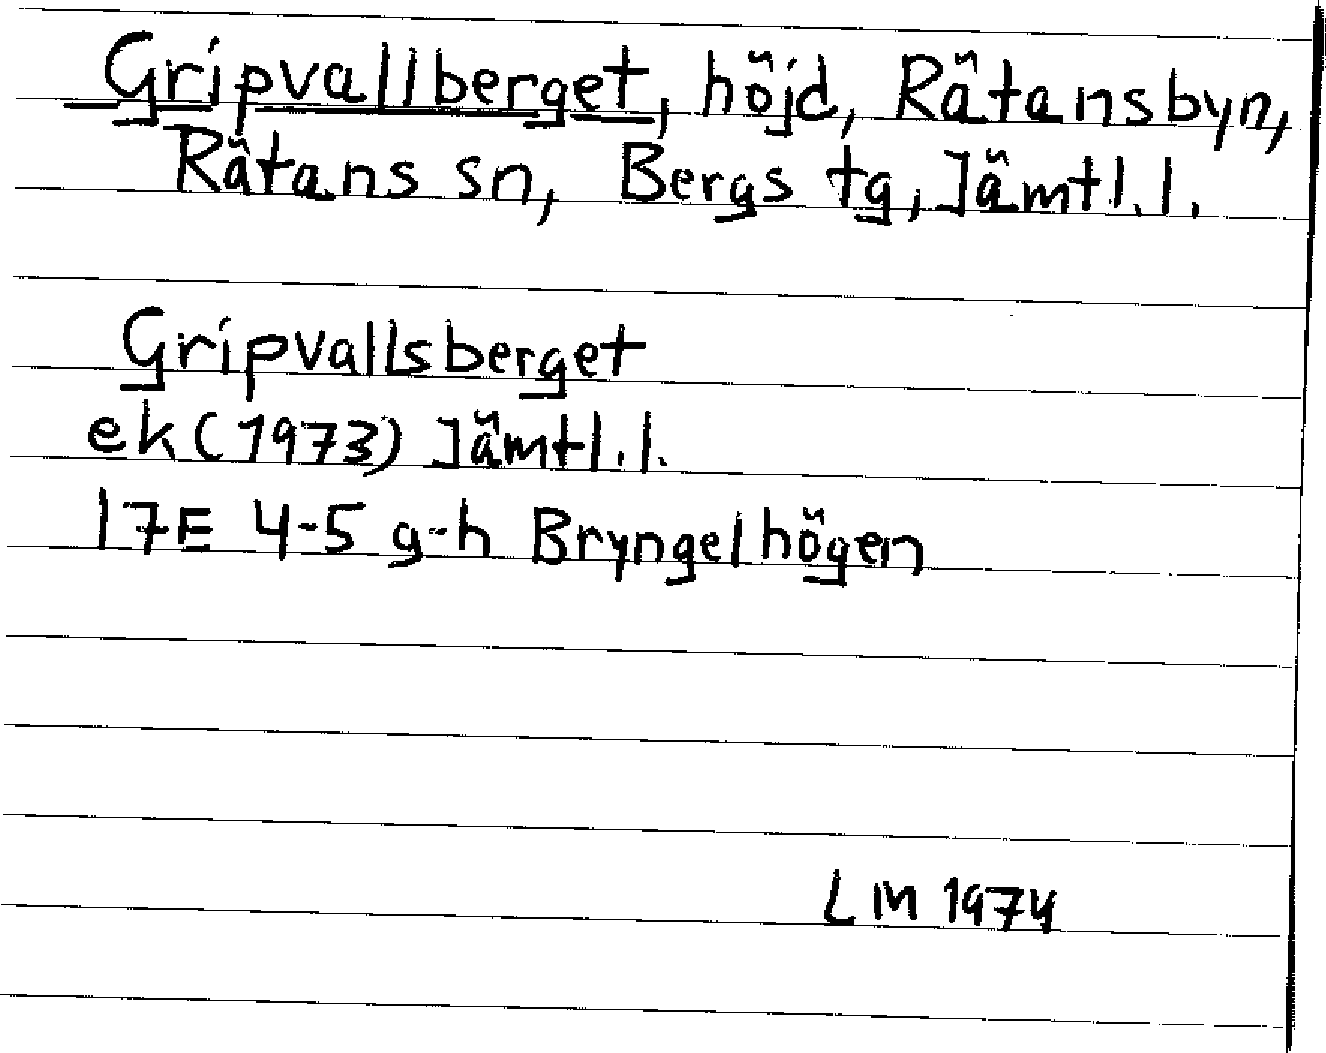 Gripvallberget, höjd, Rätansbyn,
Rätans sn, Bergs tg, Jämtl.l.
Gripvallsberget
ek (1973) Jämtl.l.
17E 4-5 g-h Bryngelhögen
LM 1974